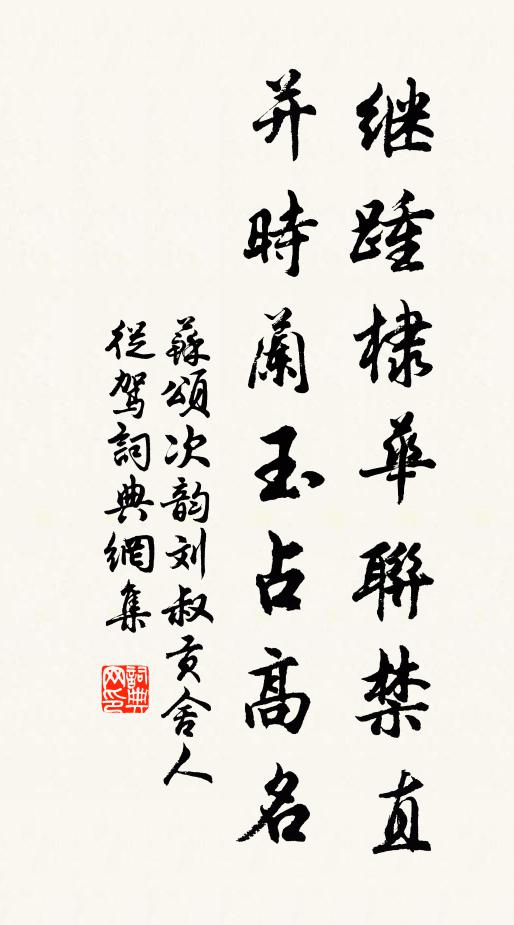 继踵棣華聯禁直
并時蘭玉占高名
蘇頌次韵刘叔贡舍人
從駕詞典網集
詞典網印